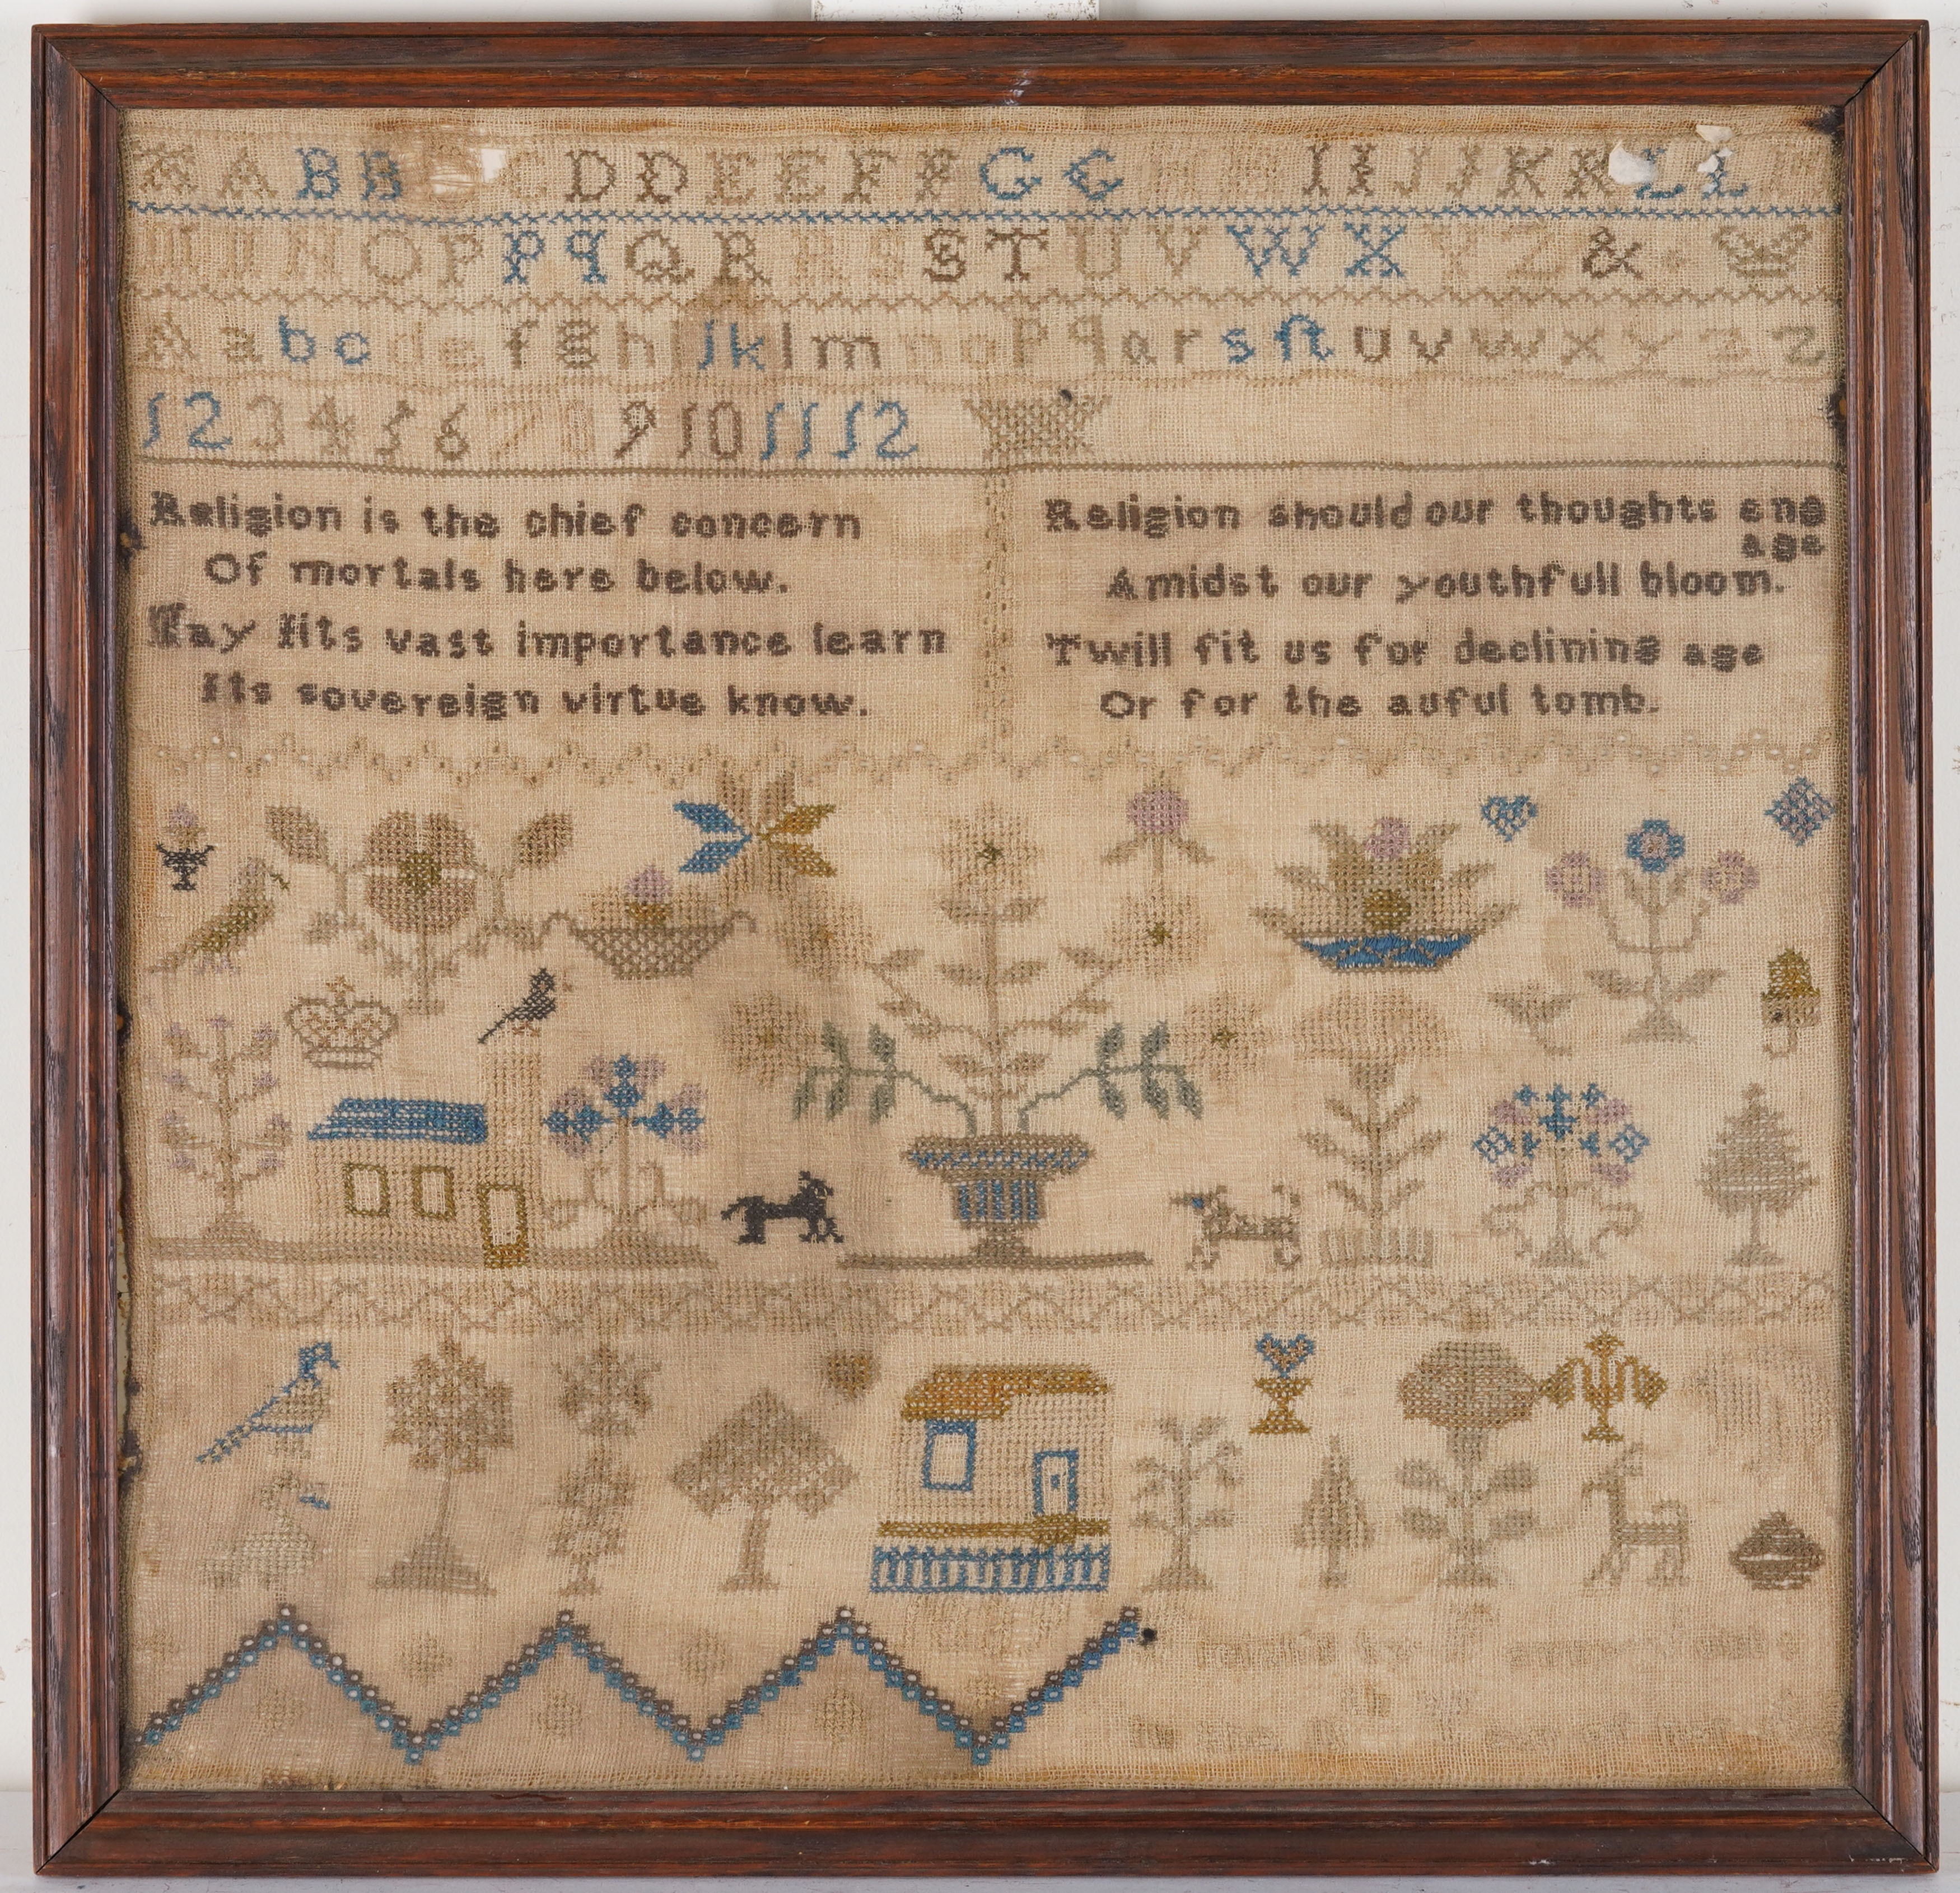 A A B B B C C D D E E F F G G H H I I J J K K L L
M N O P P q Q R R S S T U V W X Y Z &
A a b c d e f g h I j k l m n o p q a r s ſt u v w x y z z
1 2 3 4 5 6 7 8 9 10 11 12
Religion is the chief concern
Of mortals here below.
May Iits vast importance learn
Its sovereign virtue know.
Religion should our thoughts eng
age
Amidst our youthfull bloom.
Twill fit us for declining age
Or for the auful tomb.